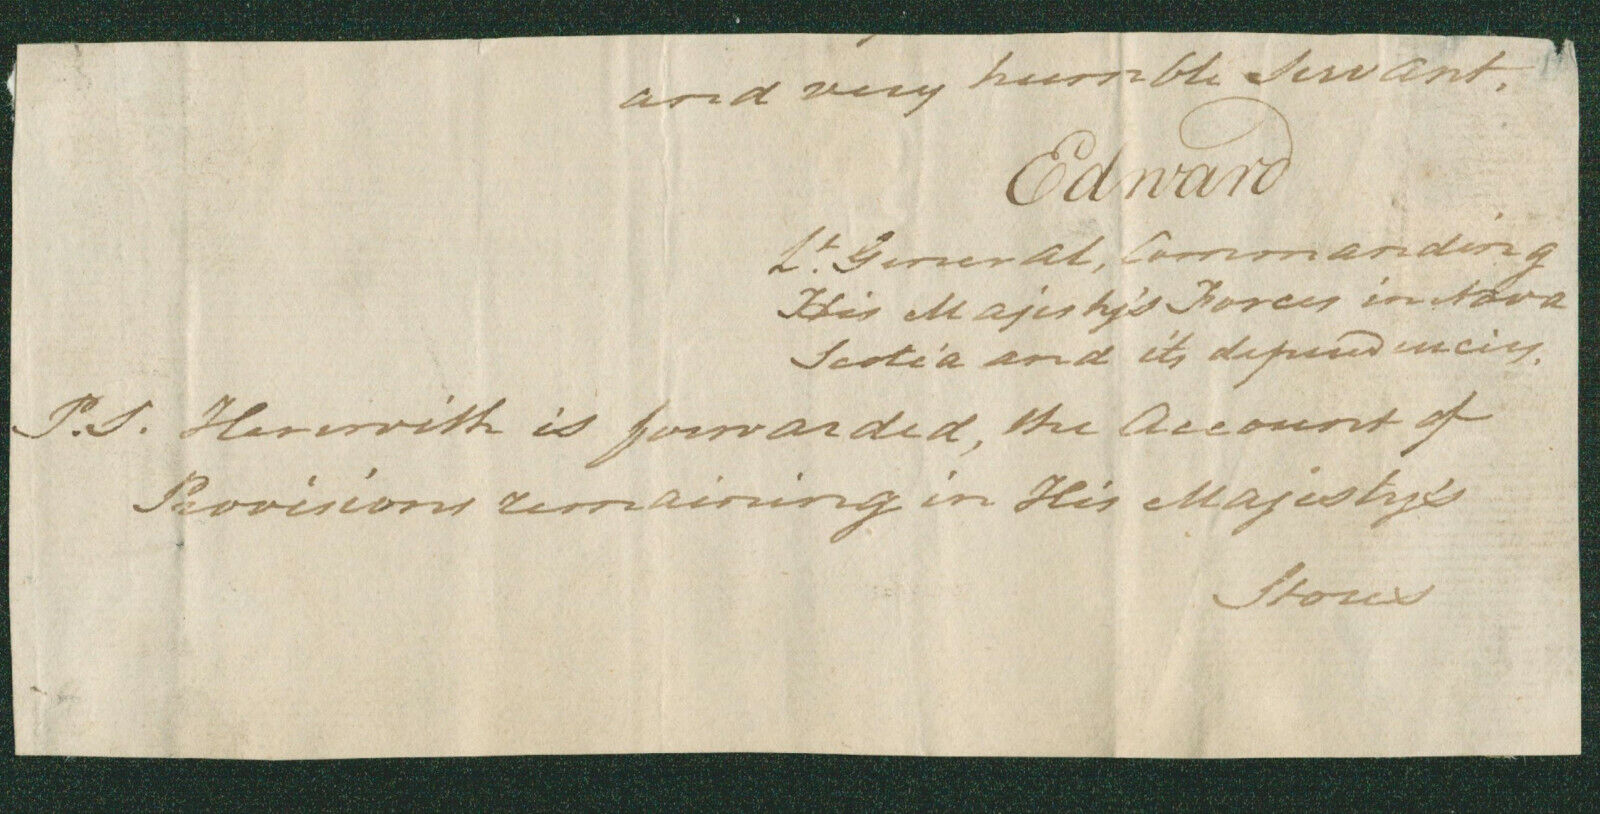 and very humble Servant,
Edward
Lt. General, Commanding
His Majesty's Forces in Nova
Scotia and its dependencies.
P.S. Herewith is forwarded, the Account of
Provisions remaining in His Majesty's
Stores